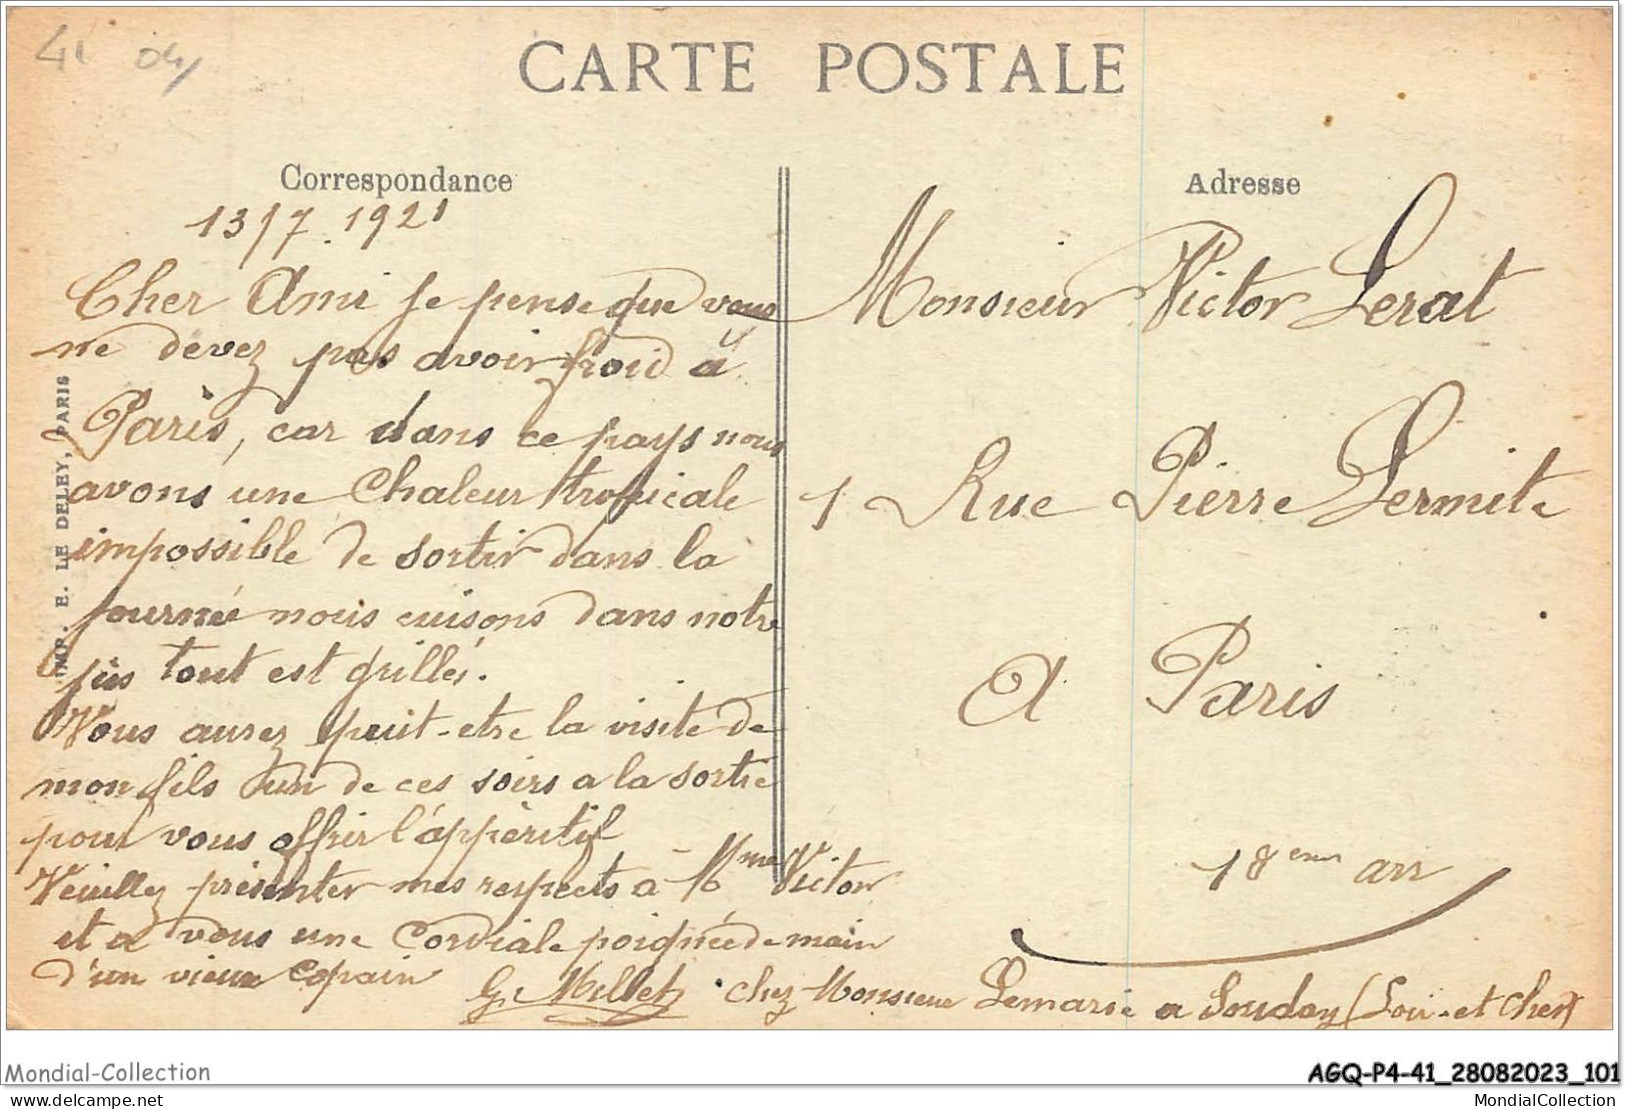 41 04
CARTE POSTALE
Correspondance
13/7.1921
Cher Ami je pense que vous
ne devez pas avoir froid à
Paris, car dans ce pays nous
avons une chaleur tropicale
impossible de sortir dans la
journeé nous cuisons dans notre
jus tout est grillés.
Vous aurez peut-etre la visite de
mon fils un de ces soirs a la sortie
pour vous offrir l'appèritif
Veuillez présenter mes respects à Mme Victor
et a vous une Cordiale poignée de main
d'un vieux copain
G. Millet chez Monsieur Lemarie a Souday (Loir-et-Cher)
IMP. E. LE DELEY, PARIS
Adresse
Monsieur Victor Lerat
1 Rue Pierre Lermite
A Paris
18eme arr
Mondial-Collection
AGQ-P4-41_28082023_101
delcampe.net
MondialCollection